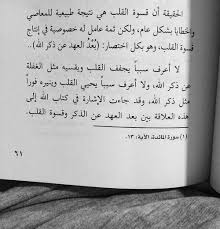 الحقيقة أن قسوة القلب هي نتيجة طبيعية للمعاصي
والخطايا بشكل عام، ولكن ثمة عامل له خصوصية في إنتاج
قسوة القلب، وهو بكل اختصار: (بُعْدُ العهد عن ذكر الله)..
لا أعرف سبباً يجفف القلب ويقسيه مثل الغفلة
عن ذكر الله، ولا أعرف سبباً يحيي القلب وينيره فوراً
مثل ذكر الله، وقد جاءت الإشارة في كتاب الله إلى
هذه العلاقة بين بعد العهد عن الذكر وقسوة القلب.
(١) سورة المائدة، الآية: ١٣.
٦١